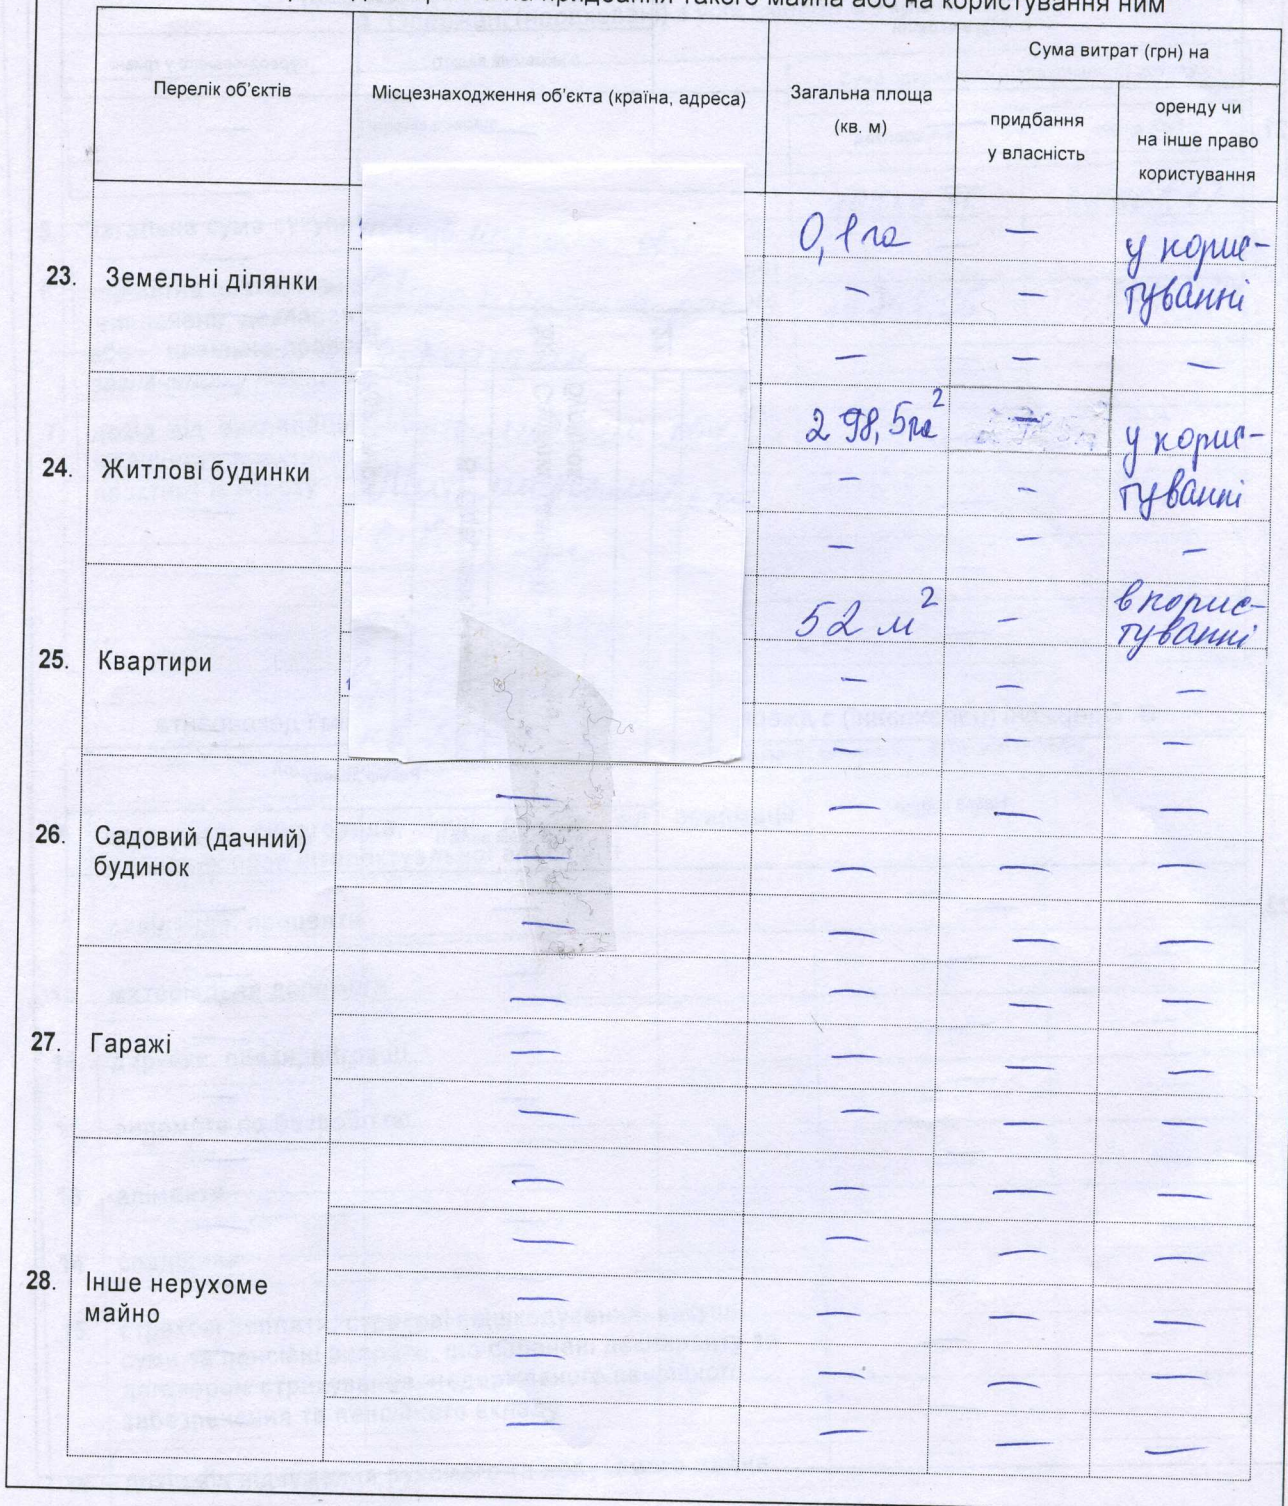 придбання такого майна або на користування ним
Перелік об'єктів
Місцезнаходження об'єкта (країна, адреса)
Загальна площа
(кв. м)
Сума витрат (грн) на
придбання
у власність
оренду чи
на інше право
користування
23. Земельні ділянки
0,1 га — у корис-
туванні
— —
— — —
24. Житлові будинки
298,5 м² — у корис-
туванні
— —
— — —
25. Квартири
52 м² — в корис-
туванні
— — —
— — —
26. Садовий (дачний)
будинок
— — — —
— — — —
— — — —
27. Гаражі
— — — —
— — — —
— — — —
28. Інше нерухоме
майно
— — — —
— — — —
— — — —
— — — —
— — — —